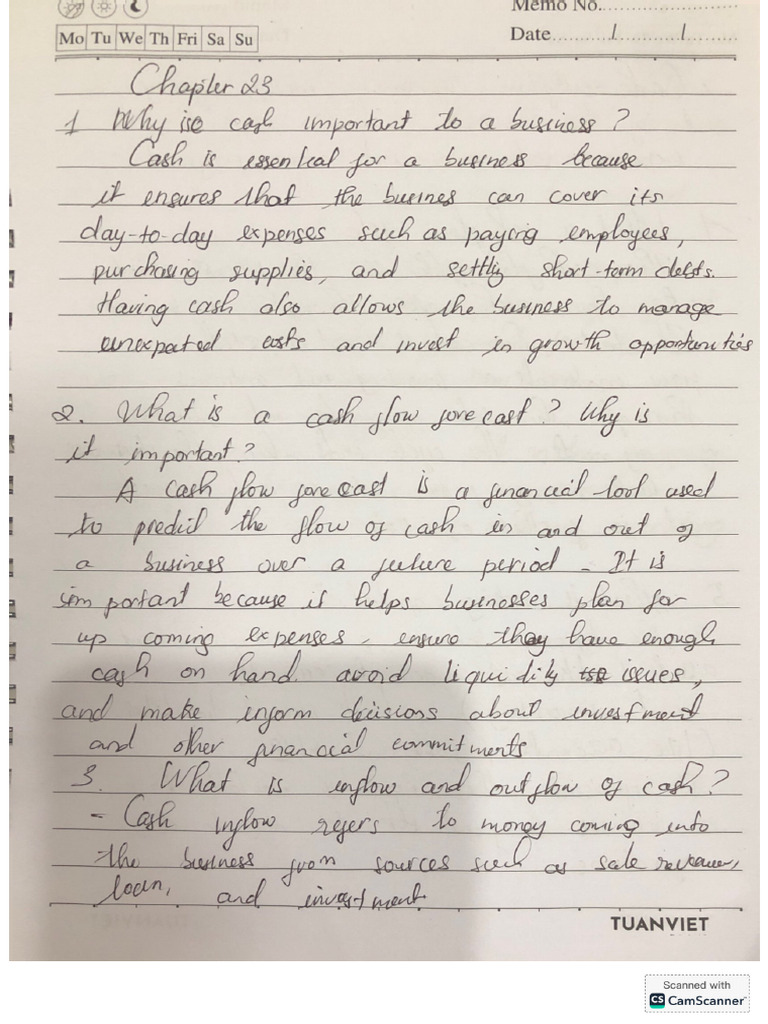 Memo No.
Mo Tu We Th Fri Sa Su
Date / /
Chapter 23
1 Why is cash important to a business?
Cash is essential for a business because
it ensures that the busines can cover its
day-to-day expenses such as paying employees,
purchasing supplies, and settlig short-term debts.
Having cash also allows the business to manage
unexpected costs and invest in growth opportunities
2. What is a cash flow forecast? Why is
it important?
A cash flow forecast is a financial tool used
to predict the flow of cash in and out of
a business over a future period - It is
important because it helps businesses plan for
up coming expenses, ensure they have enough
cash on hand. avoid liquidity issues,
and make inform decisions about investment
and other financial commitments
3. What is inflow and outflow of cash?
- Cash inflow refers to money coming into
the business from sources such as sale revenue,
loan, and investment
TUANVIET
Scanned with
CS CamScanner